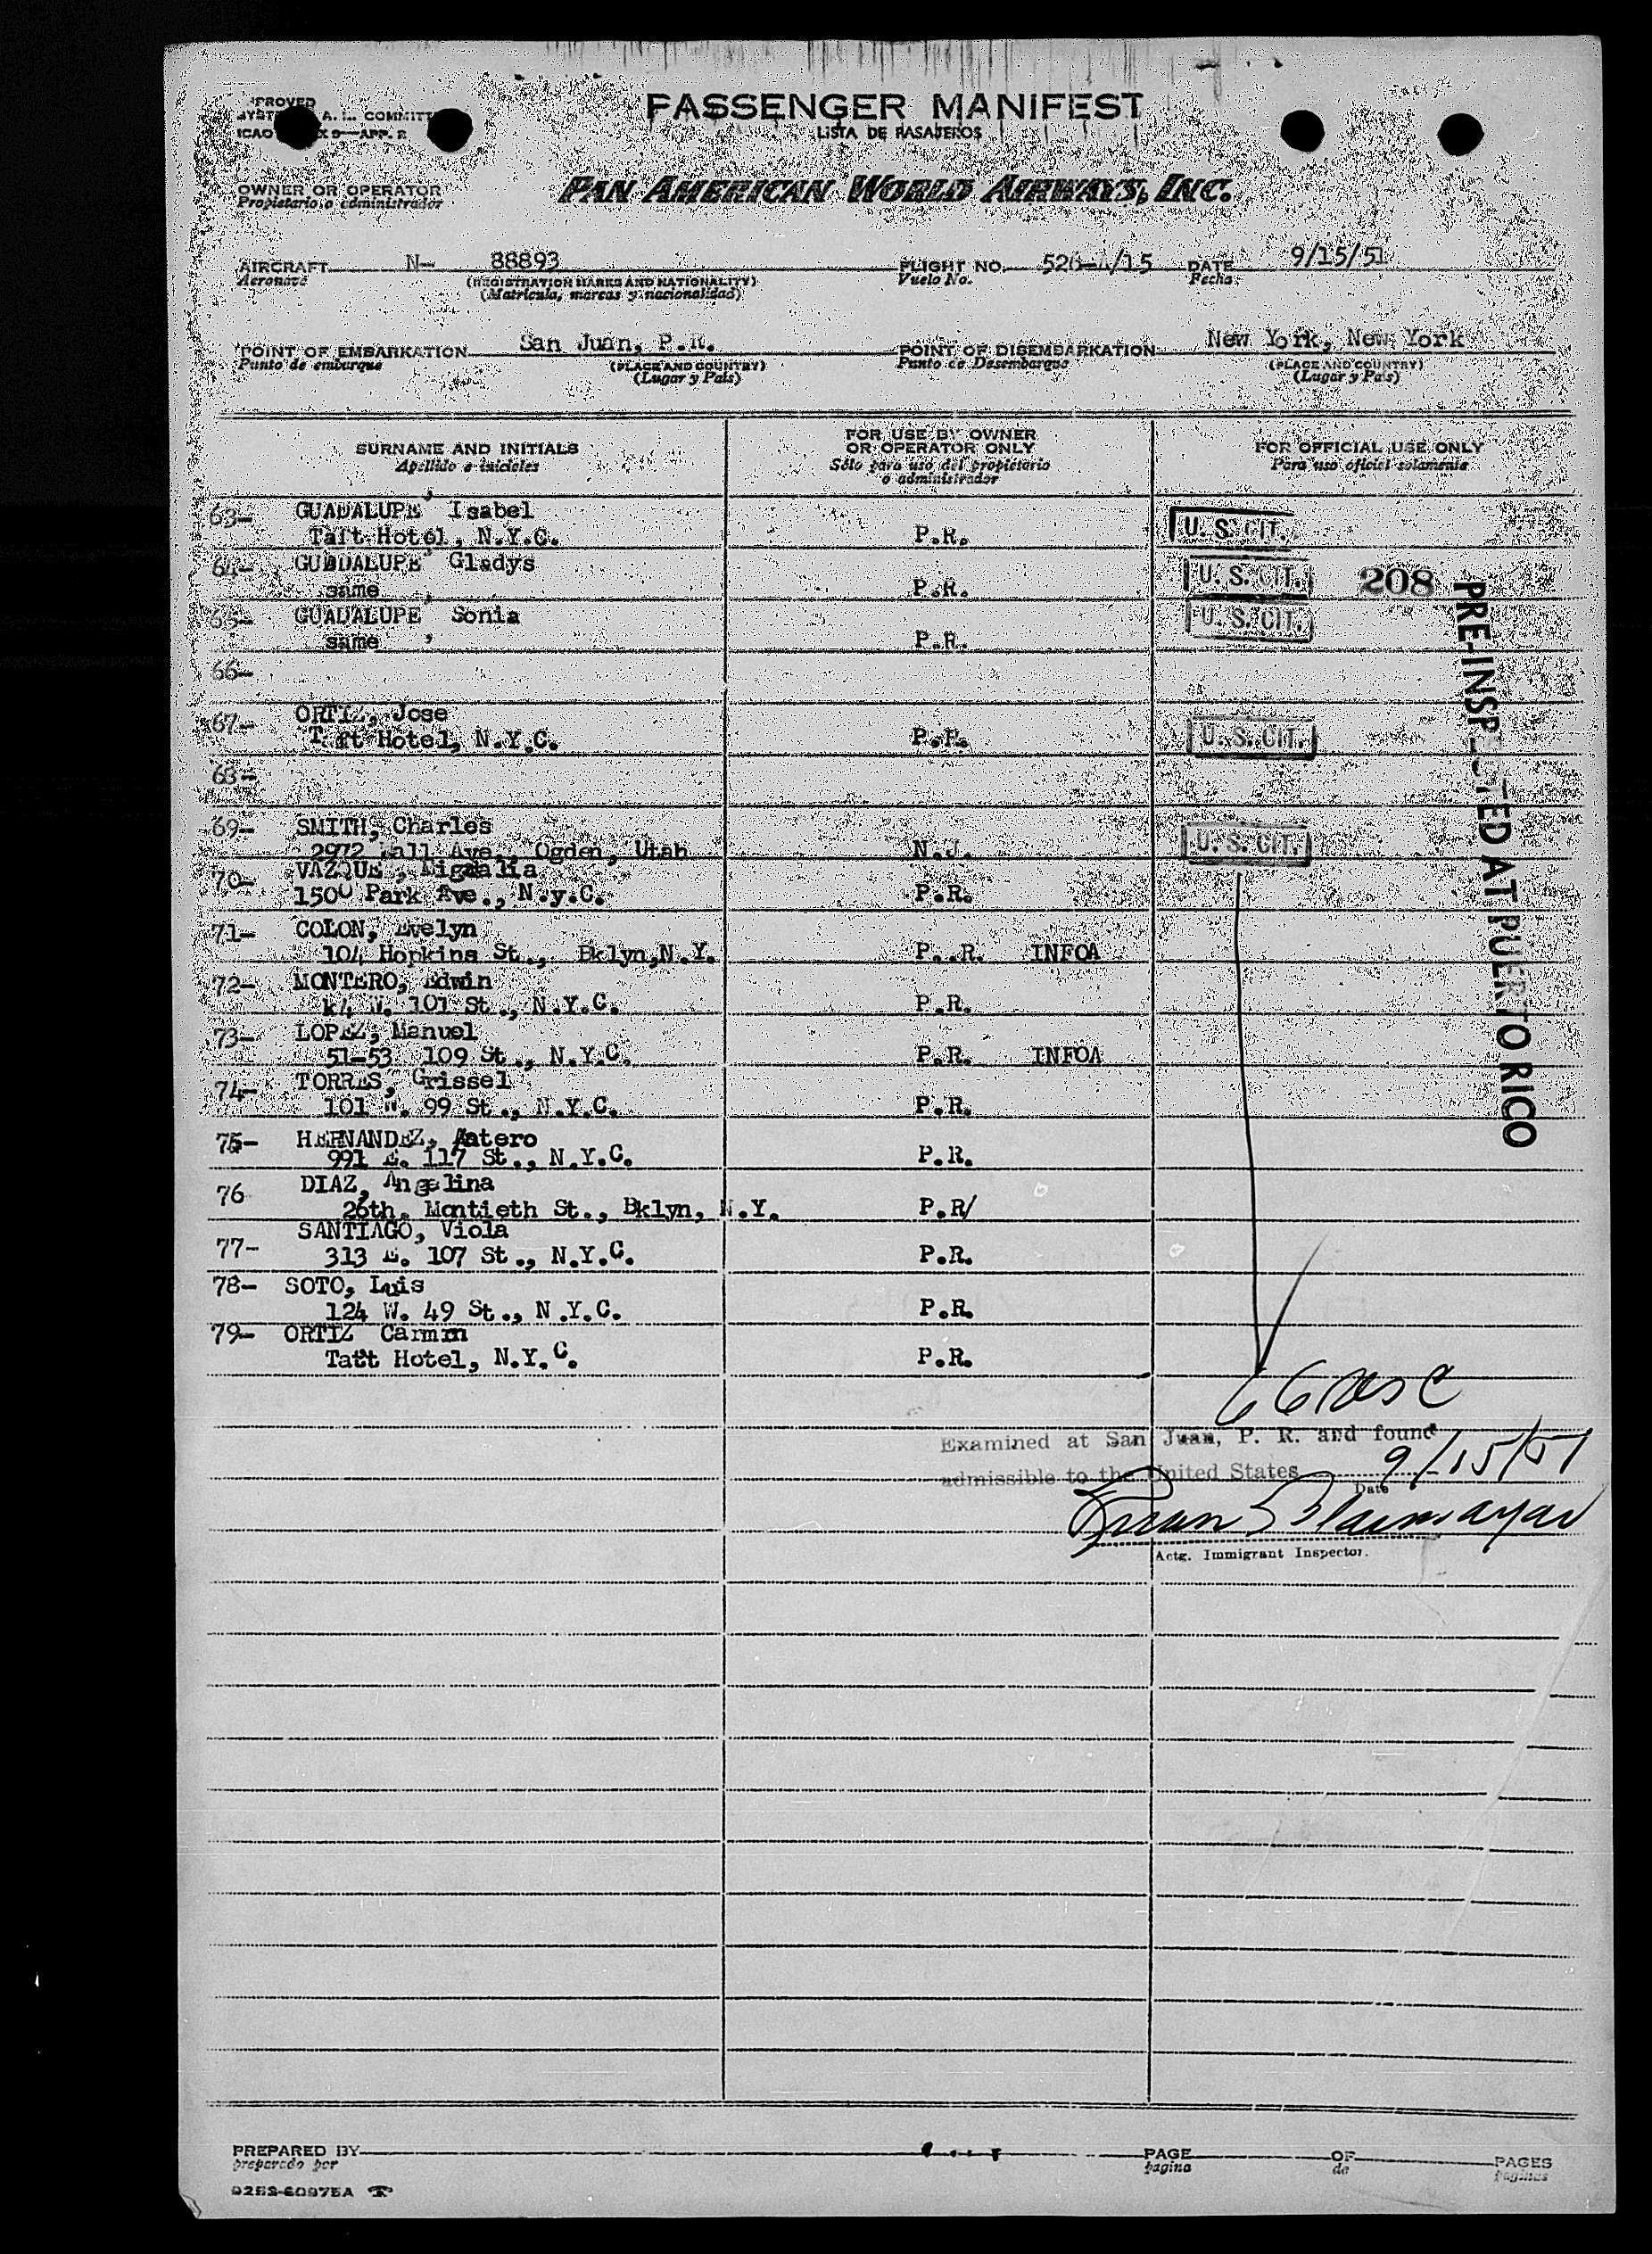 PASSENGER MANIFEST
LISTA DE PASAJEROS
A. L. COMMITT
ICAO 9—APP. E
OWNER OR OPERATOR
Propietario o administrador
PAN AMERICAN WORLD AIRWAYS, INC.
AIRCRAFT N- 88893 FLIGHT NO. 526-A/15 DATE 9/15/51
Aeronave (REGISTRATION MARKS AND NATIONALITY) Vuelo No. Fecha
(Matrícula, marcas y nacionalidad)
POINT OF EMBARKATION San Juan, P.R. POINT OF DISEMBARKATION New York, New York
Punto de embarque (PLACE AND COUNTRY) Punto de Desembarque (PLACE AND COUNTRY)
(Lugar y País) (Lugar y País)
SURNAME AND INITIALS FOR USE BY OWNER OR OPERATOR ONLY FOR OFFICIAL USE ONLY
Apellido e iniciales Sólo para uso del propietario o administrador Para uso oficial solamente
63- GUADALUPE, Isabel
Taft Hotel, N.Y.C. P.R. U. S. CIT.
64- GUADALUPE, Gladys
same P.R. U. S. CIT. 208
65- GUADALUPE, Sonia
same P.R. U. S. CIT.
66-
67- ORTIZ, Jose
Taft Hotel, N.Y.C. P.R. U. S. CIT.
68-
69- SMITH, Charles
2972 Wall Ave. Ogden, Utah N.J. U. S. CIT.
70- VAZQUE , Migdalia
1500 Park Ave., N.y.C. P.R.
71- COLON, Evelyn
104 Hopkins St., Bklyn,N.Y. P..R. INFOA
72- MONTERO, Edwin
k4 W. 101 St., N.Y.C. P.R.
73- LOPEZ, Manuel
51-53 109 St., N.Y.C. P.R. INFOA
74- TORRES, Grissel
101 W. 99 St., N.Y.C. P.R.
75- HERNANDEZ, Aatero
991 E. 117 St., N.Y.C. P.R.
76 DIAZ, Angelina
26th. Montieth St., Bklyn, N.Y. P.R/
77- SANTIAGO, Viola
313 E. 107 St., N.Y.C. P.R.
78- SOTO, Luis
124 W. 49 St., N.Y.C. P.R.
79- ORTIZ Carmen
Taft Hotel, N.Y.C. P.R.
PRE-INSPECTED AT PUERTO RICO
Examined at San Juan, P. R. and found
admissible to the United States 9/15/51
Date
Actg. Immigrant Inspector.
PREPARED BY PAGE OF PAGES
preparado por página de páginas